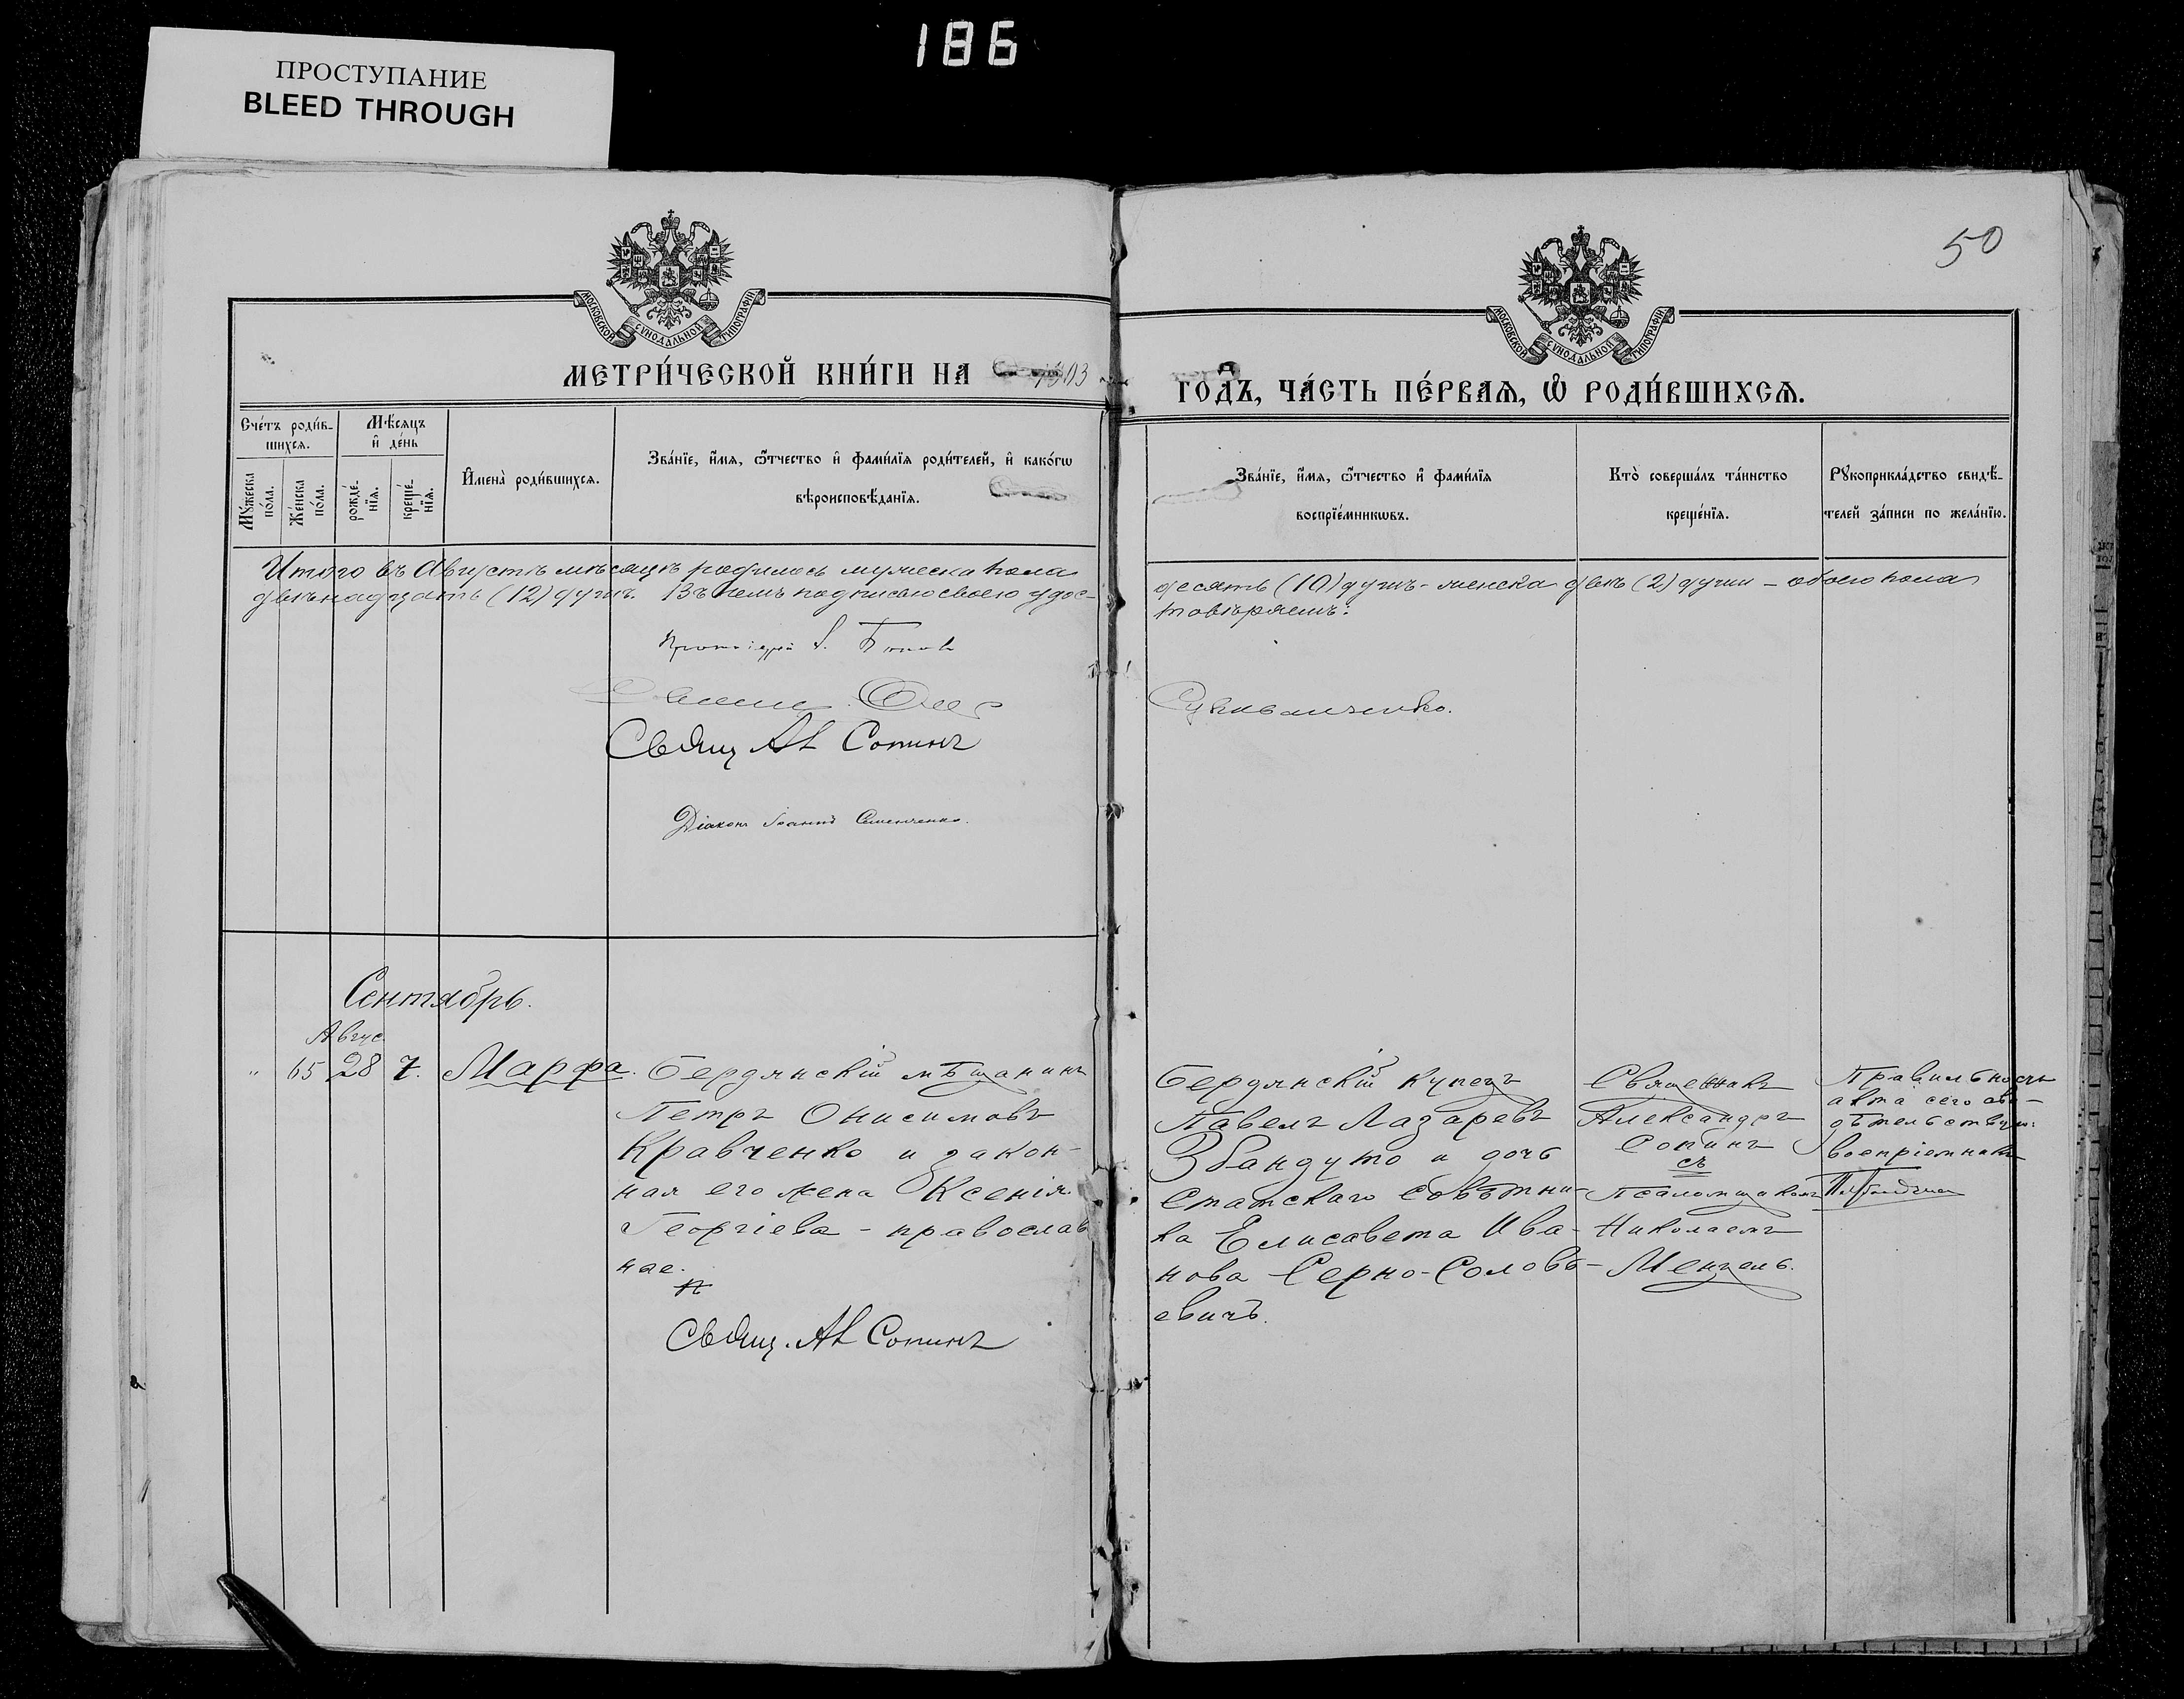 186
ПРОСТУПАНИЕ
BLEED THROUGH
50
МОСКОВСКОЙ СѴНОДАЛЬНОЙ ТИПОГРАФІИ
МОСКОВСКОЙ СѴНОДАЛЬНОЙ ТИПОГРАФІИ
МЕТРИ́ЧЕСКОЙ КНИ́ГИ НА 1903
ГОДЪ, ЧА́СТЬ ПЕ́РВАѦ, Ѡ҆ РОДИ́ВШИХСѦ.
Сче́тъ роди́в-
шихсѧ.
Мꙋ́жеска
по́ла.
Же́нска
по́ла.
Мѣ́сѧцъ
и҆ де́нь
рожде́-
нїѧ.
креще́-
нїѧ.
И҆мена̀ роди́вшихсѧ.
Зва́нїе, и҆́мѧ, ѻ҆́тчество и҆ фами́лїѧ роди́телей, и҆ како́гѡ
вѣроисповѣ́данїѧ.
Зва́нїе, и҆́мѧ, ѻ҆́тчество и҆ фами́лїѧ
воспрїе́мникѡвъ.
Кто̀ соверша́лъ та́инство
креще́нїѧ.
Рꙋкоприкла́дство свидѣ́-
телей за́писи по жела́нїю.
Итого въ Августѣ мѣсяцѣ родилось мужеска пола
десять (10) душъ - женска двѣ (2) души - обоего пола
двѣнадцать (12) душъ. Въ чемъ подписью своею удос-
товѣряемъ:
Протоіерей
Свящ Ал Сопинъ
Діаконъ Іоаннъ Семенченко.
Сентябрь.
Авгус
" 65 28 7. Марфа.
Бердянскій мѣщанинъ
Петръ Онисимовъ
Кравченко и закон-
ная его жена Ксенія
Георгіева - православ
ные.
Свящ. Ал Сопинъ
Бердянскій купецъ
Павелъ Лазаревъ
Збандуто и дочь
Статскаго Совѣтни-
ка Елисавета Ива-
нова Серно-Соловь-
евичъ.
Священникъ
Александръ
Сопинъ
съ
Псаломщикомъ
Николаемъ
Менцель.
Правильность
акта сего сви-
дѣтельствую:
воспріемникъ